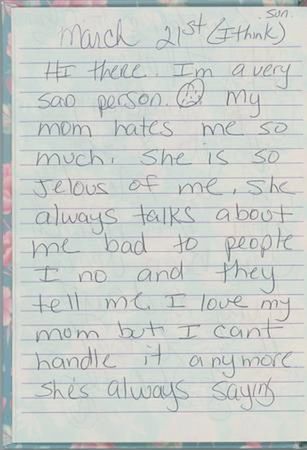 Sun.
March 21st (I think)
Hi there. I'm a very
sad person. my
mom hates me so
much. She is so
Jelous of me. She
always talks about
me bad to people
I no and they
tell me. I love my
mom but I cant
handle it anymore
she's always saying